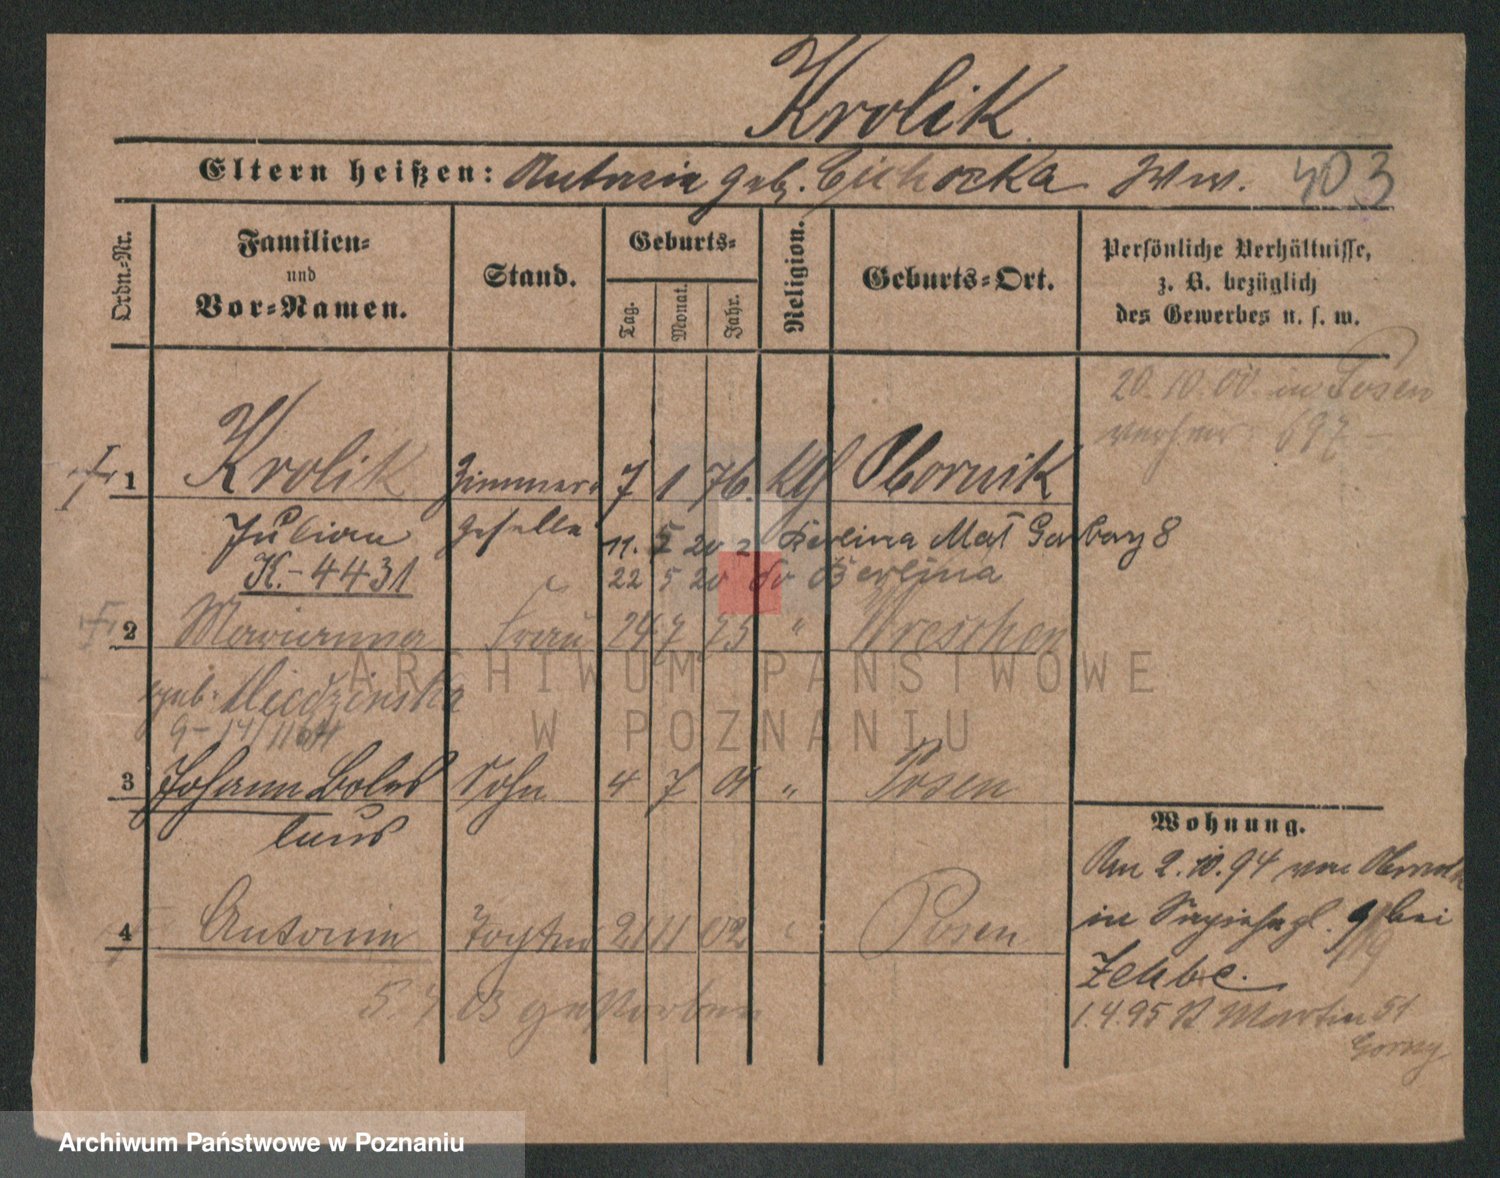 Krolik
Eltern heißen: Antonie geb. Cichocka Ww. 403
Ordn.-Nr.
Familien- und Vor-Namen.
Stand.
Geburts-
Tag. Monat. Jahr.
Religion.
Geburts-Ort.
Persönliche Verhältnisse, z. B. bezüglich des Gewerbes u. s. w.
20.10.00. in Posen
verheir: 697
1 Krolik Zimmer- 7 1 76. Kth Obornik
Julian geselle 11. 5 20 Berlina Mat Garbary 8
K.-4431 22 5 20 Berlina
2 Marianna Frau 24 7 75 " Wreschen
geb. Miedzinska
3 Johann Boles Sohn 4 7 01 " Posen
laus
4 Antonie Tochter 21 11 02 " Posen
5. 4 03 gestorben
Wohnung.
Am 2.10.94 von Obornik
in 9 bei
Zembe.
1.4.95 St Martin 51
Gorny
ARCHIWUM PAŃSTWOWE
W POZNANIU
Archiwum Państwowe w Poznaniu